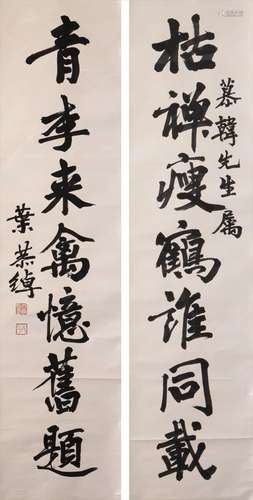 慕韓先生属
枯禅瘦鶴誰同載
青李来禽憶舊題
葉恭綽